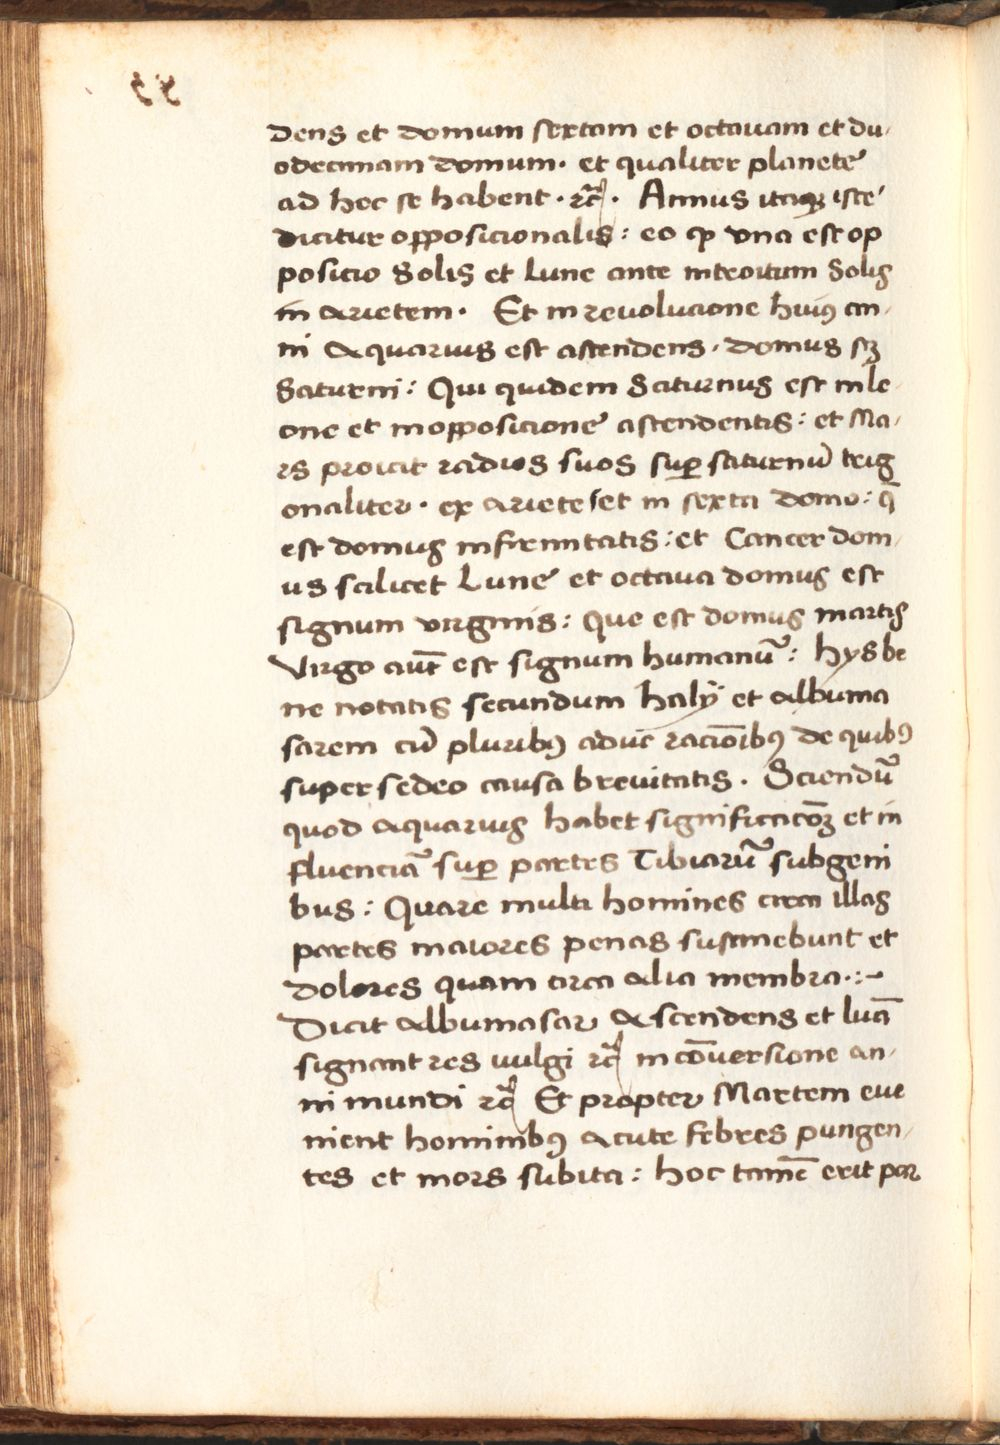 dens et domum sextam et octauam et du-
odecimam domum. et qualiter planete
ad hoc se habent. rc̃. Annus itaqꝫ iste
dicitur opposicionalis: eo ꝙ vna est op
posicio Solis et Lune ante introitum Solis
in arietem. Et in reuolucione huiꝰ an-
ni aquarius est ascendens. domus sꝫ
Saturni: Qui quidem Saturnus est in le-
one et in opposicione ascendentis: et Ma-
rs proicit radios suos suꝑ saturnū trig
onaliter. ex ariete et in sexta domo: q̄
est domus infirmitatis: et Cancer dom-
us scilicet Lune et octaua domus est
signum virginis: Que est domus martis
Virgo aūt est signum humanū: hys be
ne notatis secundum haly et albuma
sarem cū pluribꝰ aduc̄ racionībꝰ de quibꝰ
supersedeo causa breuitatis. Sciendū
quod aquarius habet significacōꝫ et in
fluenciā suꝑ partes Tibiarū sub geni
bus: Quare multi homines circa illas
partes maiores penas sustinebunt et
dolores quam circa alia membra.:~
Dicit albumasar Ascendens et lūa
signant res vulgi rc̃ in cōuersione an-
ni mundi rc̃ Et propter Martem eue
nient hominibꝰ acute febres pungen-
tes et mors subita: hoc tamē erit par